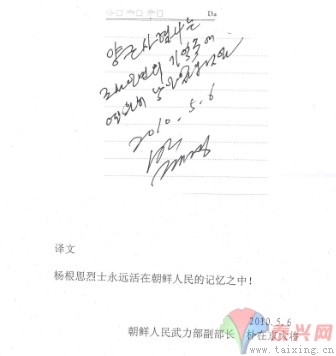 양근사 렬사는
조선인민의 기억속에
영원히
2010. 5. 6
译文
杨根思烈士永远活在朝鲜人民的记忆之中!
2010.5.6
朝鲜人民武力部副部长
泰兴网
www.taixing.cn